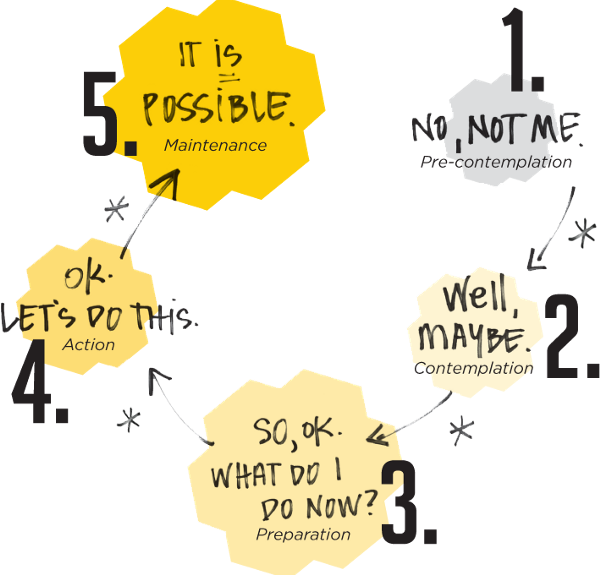 1.
NO, NOT ME.
Pre-contemplation
2.
Well,
MAYBE.
Contemplation
3.
SO, OK.
WHAT DO I
DO NOW?
Preparation
4.
OK.
LET'S DO THis.
Action
5.
IT is
POSSiBLE.
Maintenance